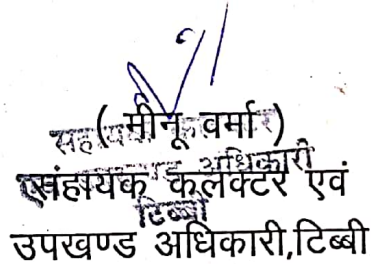 ( मीनू वर्मा )
सहायक कलक्टर एवं
उपखण्ड अधिकारी,टिब्बी
अधिकारी
टिब्बी